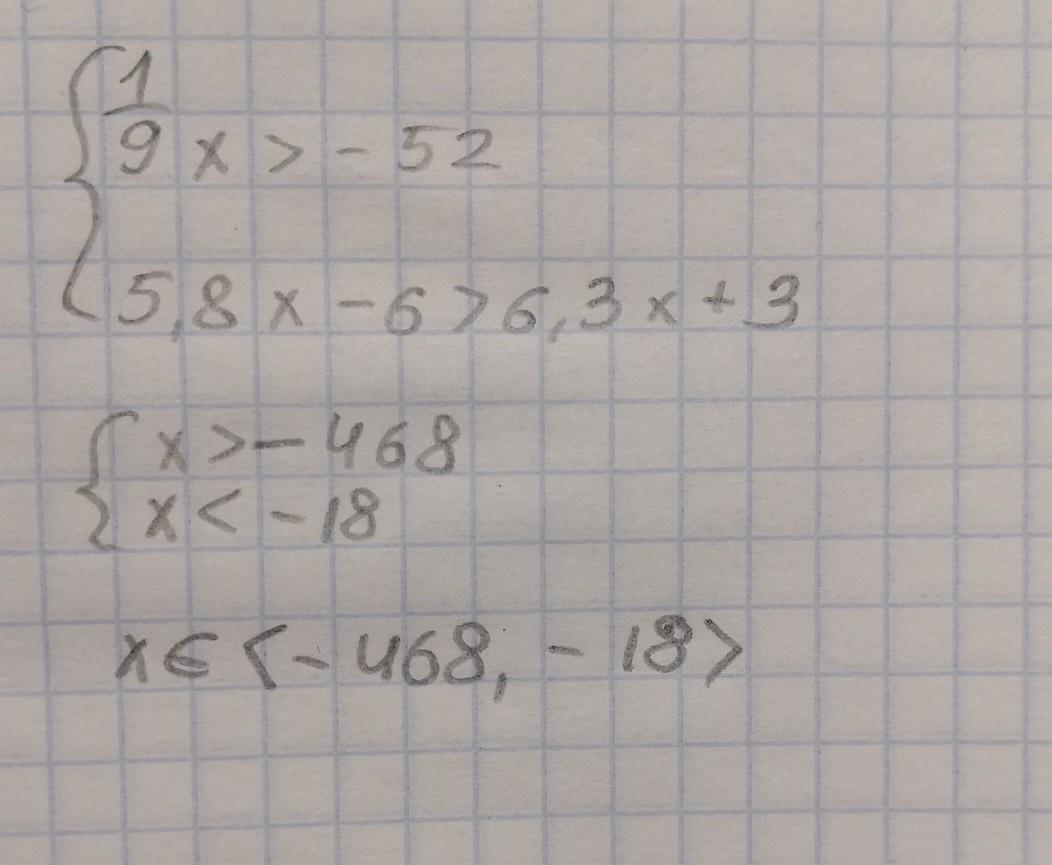 1/9 x > - 52
5,8 x - 6 > 6,3 x + 3
x > - 468
x < - 18
x ∈ < - 468, - 18 >